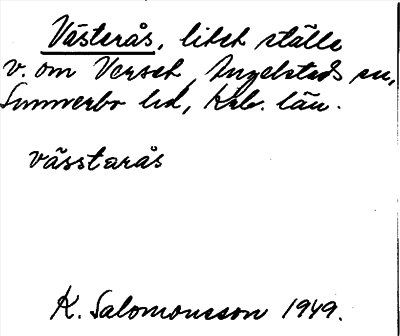 Västerås, litet ställe
v. om Versch, Angelstads sn,
Sunnerbo hd, Krb. län.
västarås
K. Salomonsson 1949.